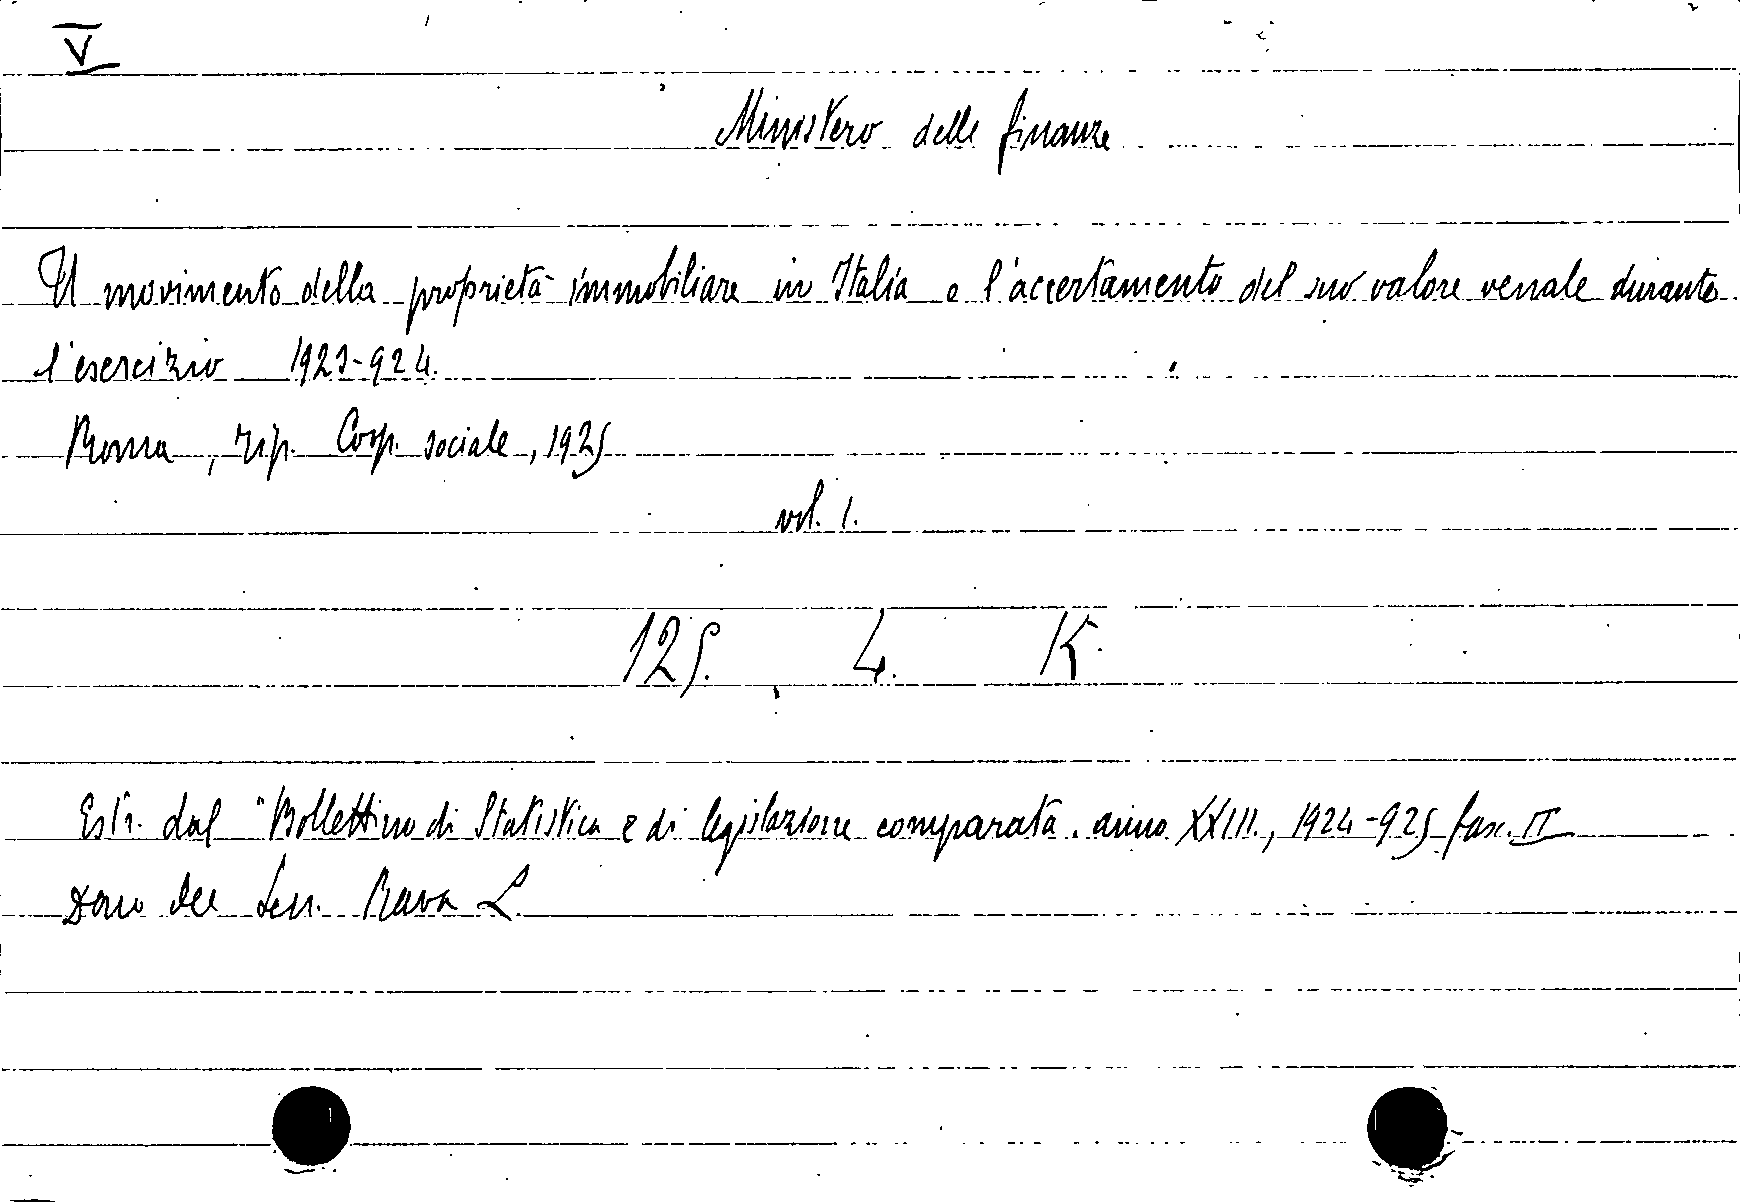 V
Ministero delle finanze
Il movimento della proprietà immobiliare in Italia e l'accertamento del suo valore venale durante
l'esercizio 1923-924.
Roma, tip. Coop. sociale, 1925
vol. 1.
125. 4. K.
Estr. dal "Bollettino di Statistica e di legislazione comparata. anno XXIII., 1924-925 fasc. II
Dono del Sen. Rava L.